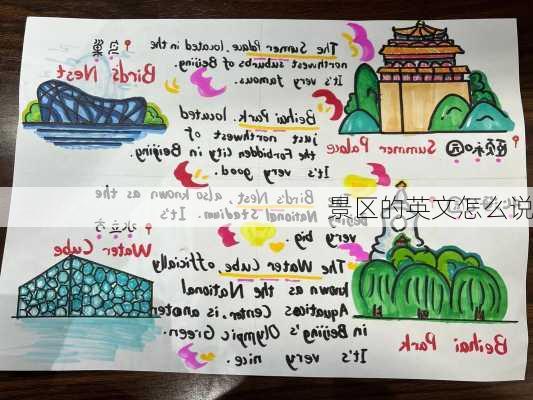 鸟巢
Bird's Nest
颐和园
Summer Palace
The Sumer Palace. located in the
northwest suburbs of Beijing.
It's very famous.
Beihai Park. located
just northwest of
the Forbidden City in Beijing.
It's very good.
Bird's Nest, also known as the
National Stadium. It's
very big.
景区的英文怎么说
The Water Cube officially
known as the National
Aquatics Center, is
in Beijing's Olympic Green.
It's very nice.
水立方
Water Cube
Beihai Park